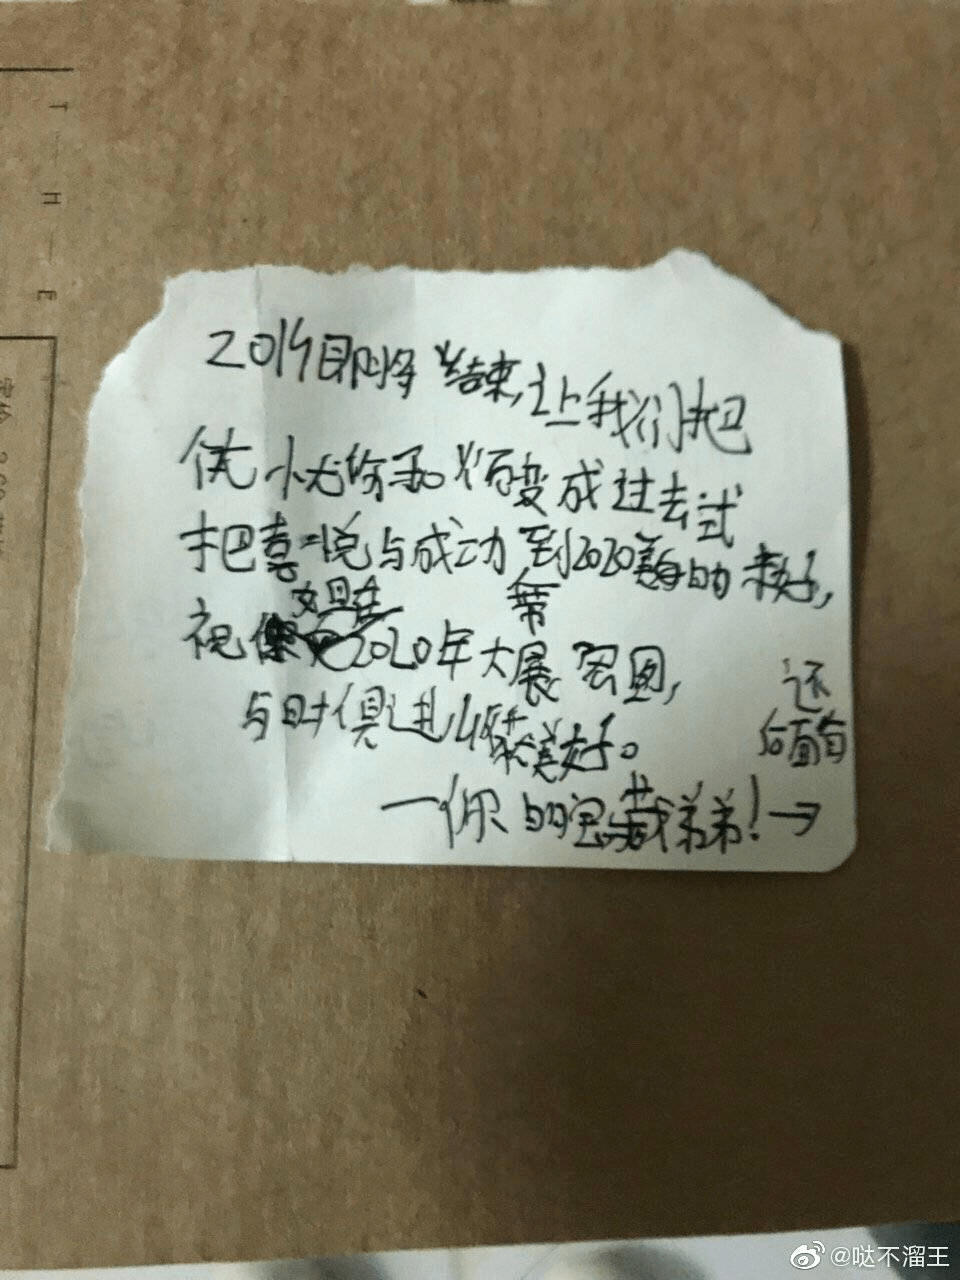 2019即将结束,让我们把
忧忧伤和烦恼变成过去式
把喜悦与成功带到2020美的美好,
祝姐在2020年大展宏图,
与时俱进,收获美好。
—你的宝藏弟弟!→
还
后面有
T-H-E
@哒不溜王